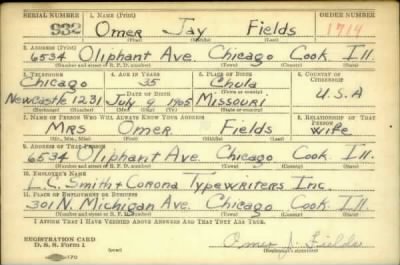 SERIAL NUMBER 1. NAME (Print) ORDER NUMBER
932 Omer Jay Fields 1714
(First) (Middle) (Last)
2. ADDRESS (Print)
6534 Oliphant Ave. Chicago Cook Ill.
(Number and street or R. F. D. number) (Town) (County) (State)
3. TELEPHONE 4. AGE IN YEARS 5. PLACE OF BIRTH 6. COUNTRY OF CITIZENSHIP
Chicago 35 Chula
DATE OF BIRTH (Town or county)
Newcastle 1231 July 9 1905 Missouri U.S.A
(Exchange) (Number) (Mo.) (Day) (Yr.) (State or country)
7. NAME OF PERSON WHO WILL ALWAYS KNOW YOUR ADDRESS 8. RELATIONSHIP OF THAT PERSON
Mrs Omer Fields wife
(Mr., Mrs., Miss) (First) (Middle) (Last)
9. ADDRESS OF THAT PERSON
6534 Oliphant Ave. Chicago Cook Ill.
(Number and street or R. F. D. number) (Town) (County) (State)
10. EMPLOYER'S NAME
L.C. Smith + Corona Typewriters Inc.
11. PLACE OF EMPLOYMENT OR BUSINESS
301 N. Michigan Ave. Chicago Cook Ill.
(Number and street or R. F. D. number) (Town) (County) (State)
I AFFIRM THAT I HAVE VERIFIED ABOVE ANSWERS AND THAT THEY ARE TRUE.
REGISTRATION CARD
D. S. S. Form 1 (over) Omer J. Fields